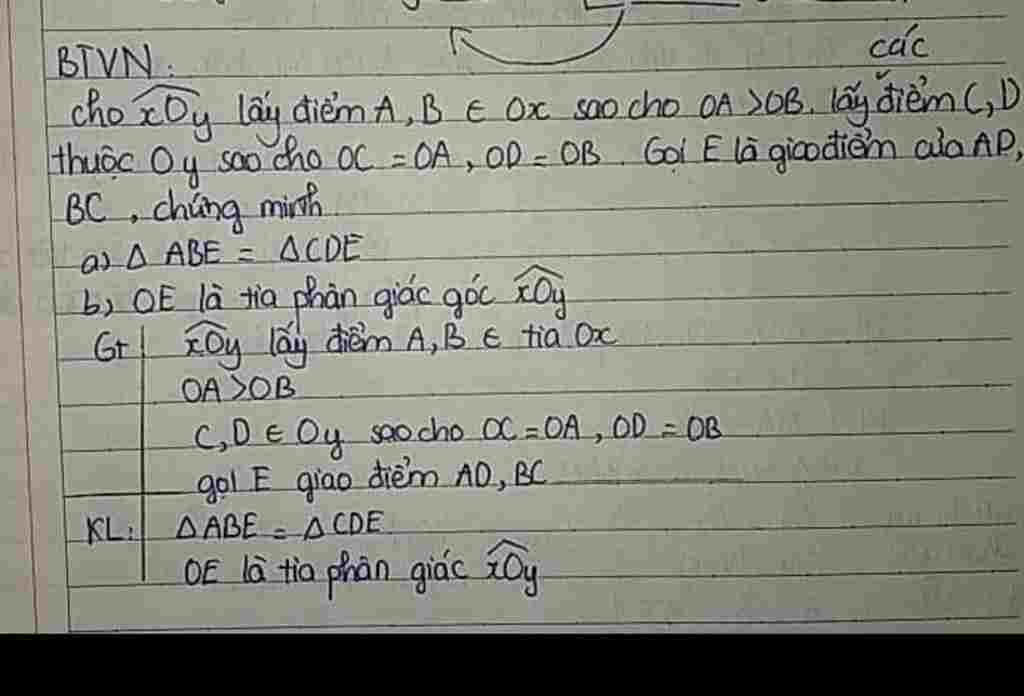 BTVN:
các
cho xOy lấy điểm A, B ∈ Ox sao cho OA > OB. lấy điểm C, D
thuộc Oy sao cho OC = OA, OD = OB. Gọi E là giao điểm của AD,
BC, chứng minh
a) Δ ABE = ΔCDE
b) OE là tia phân giác góc xOy
Gt xOy lấy điểm A, B ∈ tia Ox
OA > OB
C, D ∈ Oy sao cho OC = OA, OD = OB
gọi E giao điểm AD, BC
KL: ΔABE = ΔCDE
OE là tia phân giác xOy